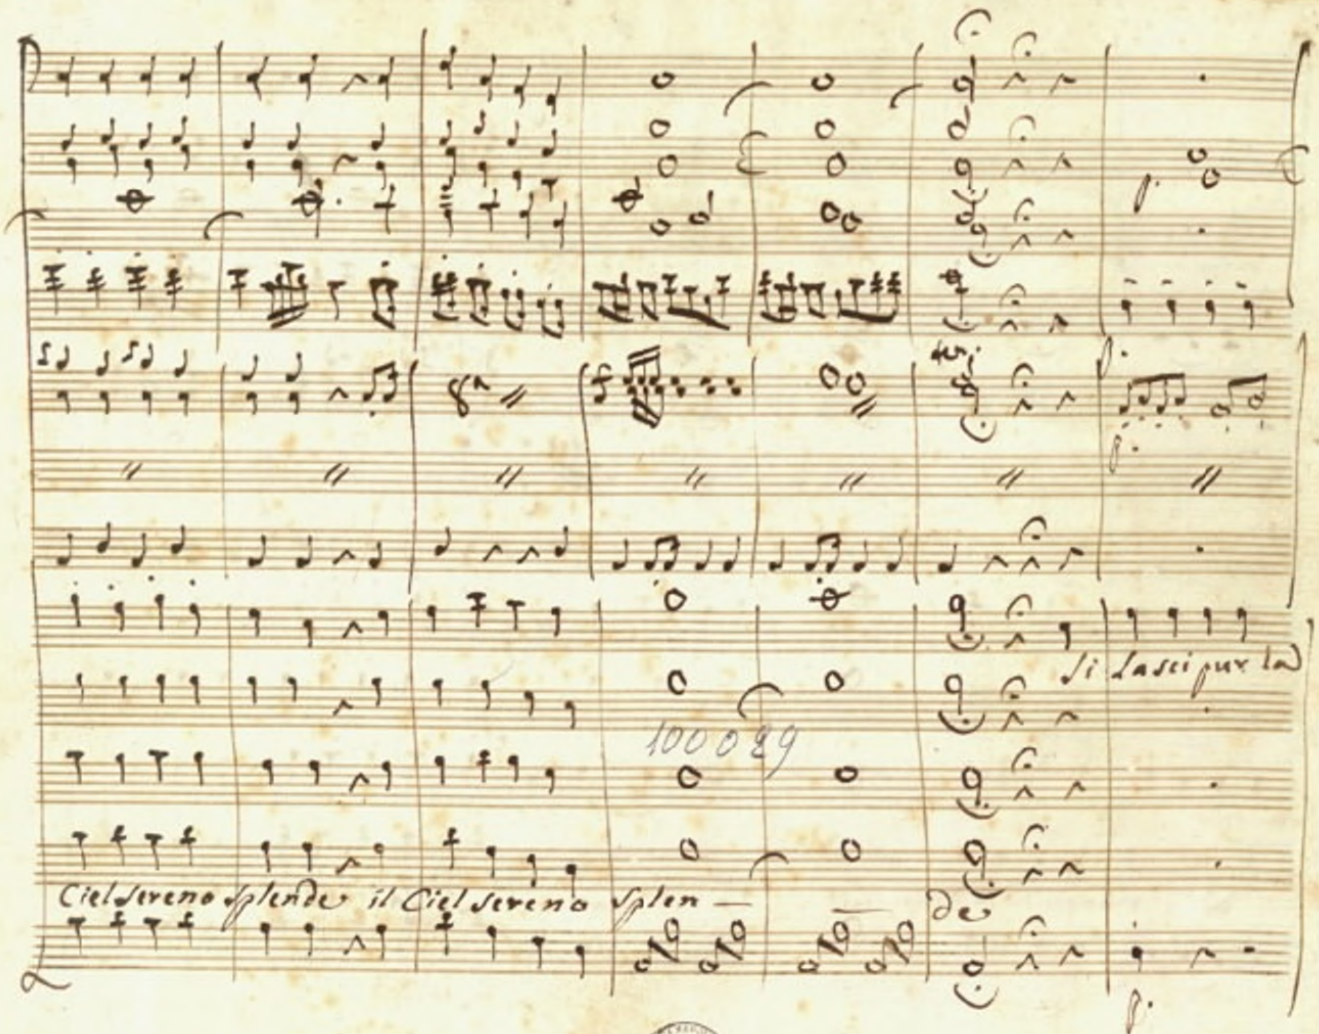 ten:
8ª
p.
p.
p.
Si Lasci pur la
100029
Ciel sereno splende il Ciel sereno splen — de
p.